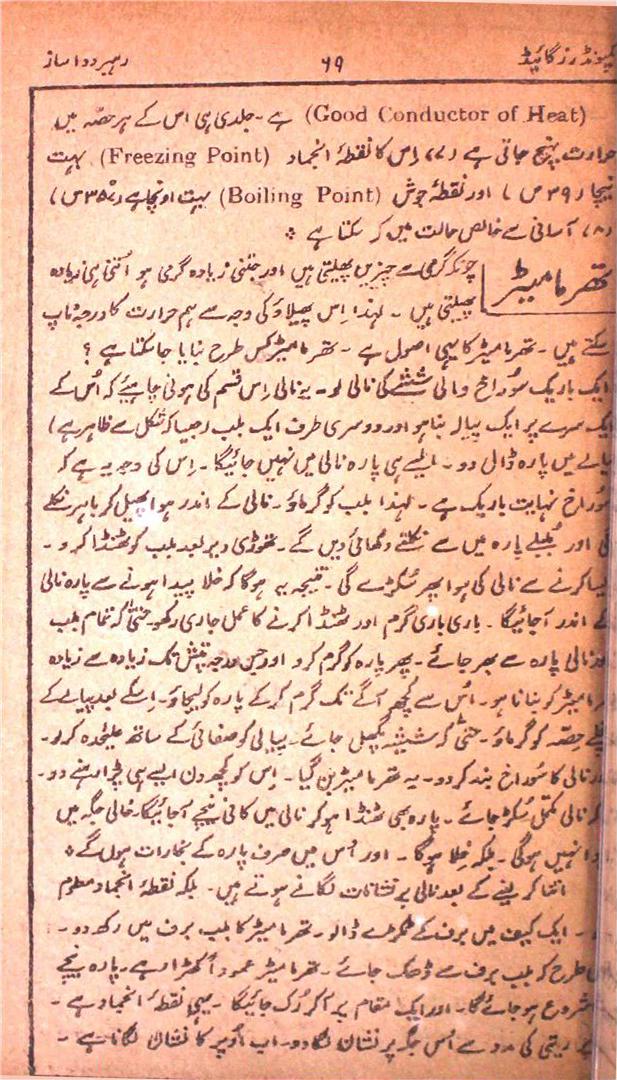 کمپونڈرز گائیڈ ۶۹ رہبر دوا ساز
(Good Conductor of Heat) ہے۔ جلدی ہی اس کے ہر حصّہ میں
حرارت پہنچ جاتی ہے (۷) اِس کا نقطۂ انجماد (Freezing Point) بہت
نیچا (۳۹ س) اور نقطۂ جوش (Boiling Point) بہت اونچا ہے (۳۵۷ س)
(۸) آسانی سے خالص حالت میں کر سکتا ہے ؞
تھرمامیٹر
چونکہ گرمی سے چیزیں پھیلتی ہیں اور جتنی زیادہ گرمی ہو اُتنی ہی زیادہ
پھیلتی ہیں۔ لہٰذا اِس پھیلاؤ کی وجہ سے ہم حرارت کا درجہ ناپ
سکتے ہیں۔ تھرمامیٹر کا یہی اصول ہے۔ تھرمامیٹر کس طرح بنایا جا سکتا ہے؟
ایک باریک سُوراخ والی شیشے کی نالی لو۔ یہ نالی اِس قسم کی ہونی چاہیئے کہ اُس کے
ایک سرے پر ایک پیالہ بنا ہو اور دوسری طرف ایک بلب (جیسا کہ شکل سے ظاہر ہے)
پیالے میں پارہ ڈال دو۔ ایسے ہی پارہ نالی میں نہیں جائیگا۔ اِس کی وجہ یہ ہے کہ
سُوراخ نہایت باریک ہے۔ لہٰذا بلب کو گرماؤ۔ نالی کے اندر ہوا پھیل کر باہر نکلے
گی اور بُلبلے پارہ میں سے نکلتے دکھائی دیں گے۔ تھوڑی دیر بعد بلب کو ٹھنڈا کرو۔
ایسا کرنے سے نالی کی ہوا پھر سُکڑے گی۔ نتیجہ یہ ہوگا کہ خلا پیدا ہونے سے پارہ نالی
کے اندر آجائیگا۔ باری باری گرم اور ٹھنڈا کرنے کا عمل جاری رکھو حتیٰ کہ تمام بلب
اور نالی پارہ سے بھر جائے۔ پھر پارہ کو گرم کرو اور جس درجہ تپش تک زیادہ سے زیادہ
تھرمامیٹر کو بنانا ہو۔ اُس سے کچھ آگے تک گرم کر کے پارہ کو لیجاؤ۔ اِسکے بعد پیالے کے
نچلے حصّہ کو گرماؤ۔ حتیٰ کہ شیشہ پگھل جائے۔ پیالی کو صفائی کے ساتھ علیٰحدہ کرلو۔
اور نالی کا سُوراخ بند کر دو۔ یہ تھرمامیٹر بن گیا۔ اِس کو کچھ دن ایسے ہی پڑا رہنے دو۔
کہ نالی مکمل سُکڑ جائے۔ پارہ بھی ٹھنڈا ہو کر نالی میں کافی نیچے آجائیگا۔ خالی جگہ میں
ہوا نہیں ہوگی۔ بلکہ خلا ہوگا۔ اور اُس میں صرف پارہ کے بخارات ہوں گے ؞
اتنا کرنے کے بعد نالی پر نشانات لگانے ہوتے ہیں۔ بلکہ نقطۂ انجماد معلوم
۔ ایک کیف میں برف کے ٹکڑے ڈالو۔ تھرمامیٹر کا بلب برف میں رکھ دو۔
اس طرح کہ بلب برف سے ڈھک جائے۔ تھرمامیٹر عموداً کھڑا رہے۔ پارہ نیچے
شروع ہو جائے گا۔ اور ایک مقام پر آکر رُک جائیگا۔ یہی نقطۂ انجماد ہے۔
ریتی کی مدد سے اُس جگہ پر نشان لگا دو۔ اب اُوپر کا نشان لگانا ہے۔